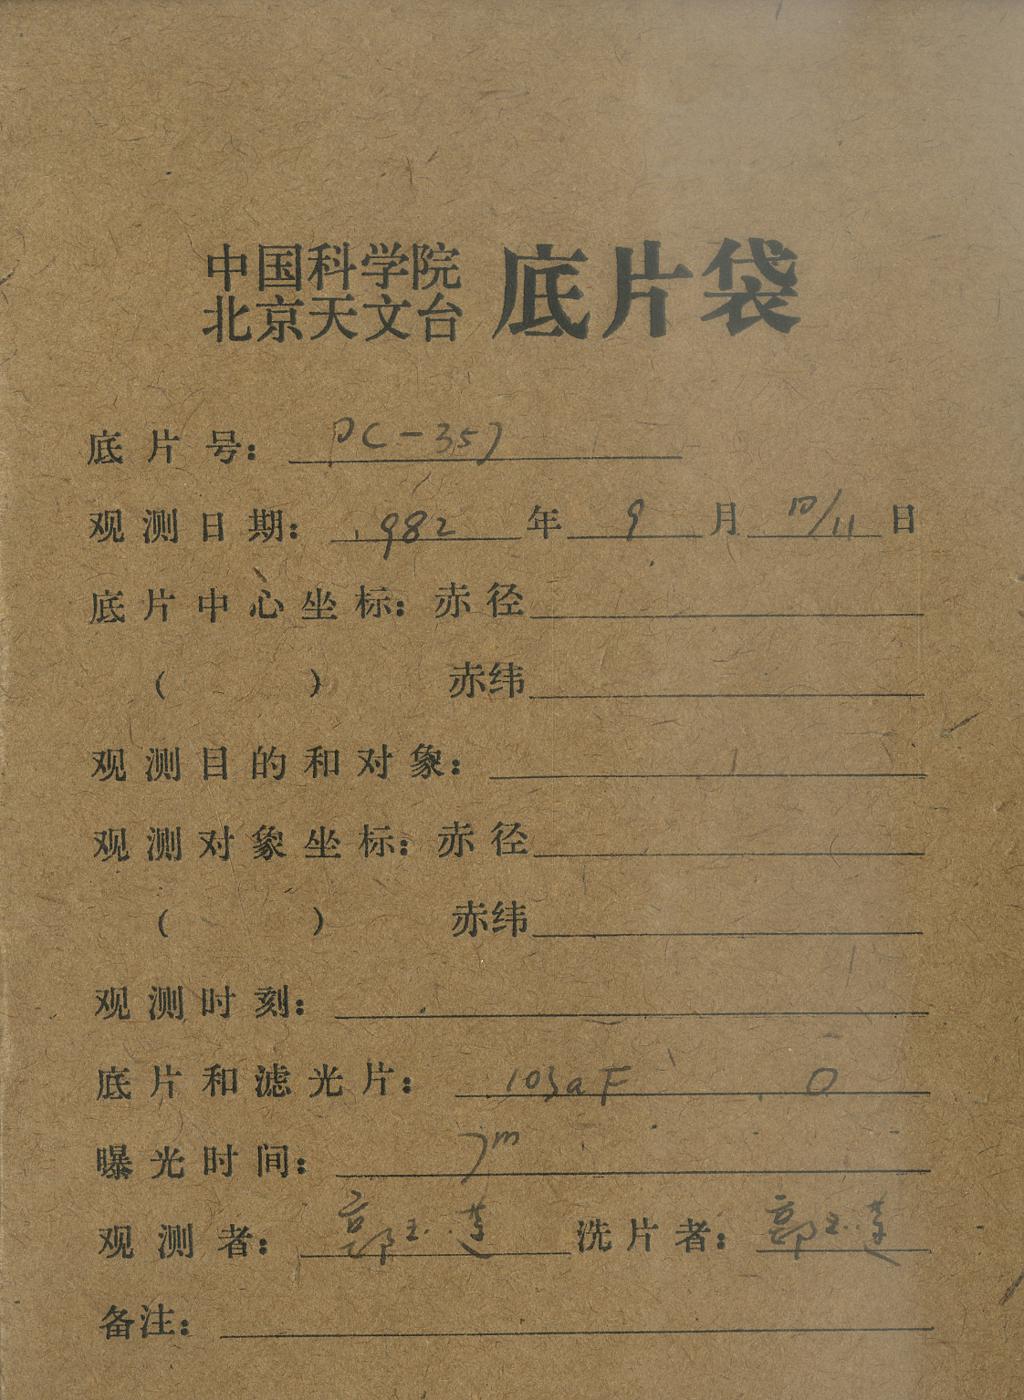 中国科学院
北京天文台 底片袋
底片号： PC-357
观测日期： 1982 年 9 月 10/11 日
底片中心坐标：赤径
（ ） 赤纬
观测目的和对象：
观测对象坐标：赤径
（ ） 赤纬
观测时刻：
底片和滤光片： 103aF 0
曝光时间： 7m
观测者： 郭玉莲 洗片者： 郭玉莲
备注：